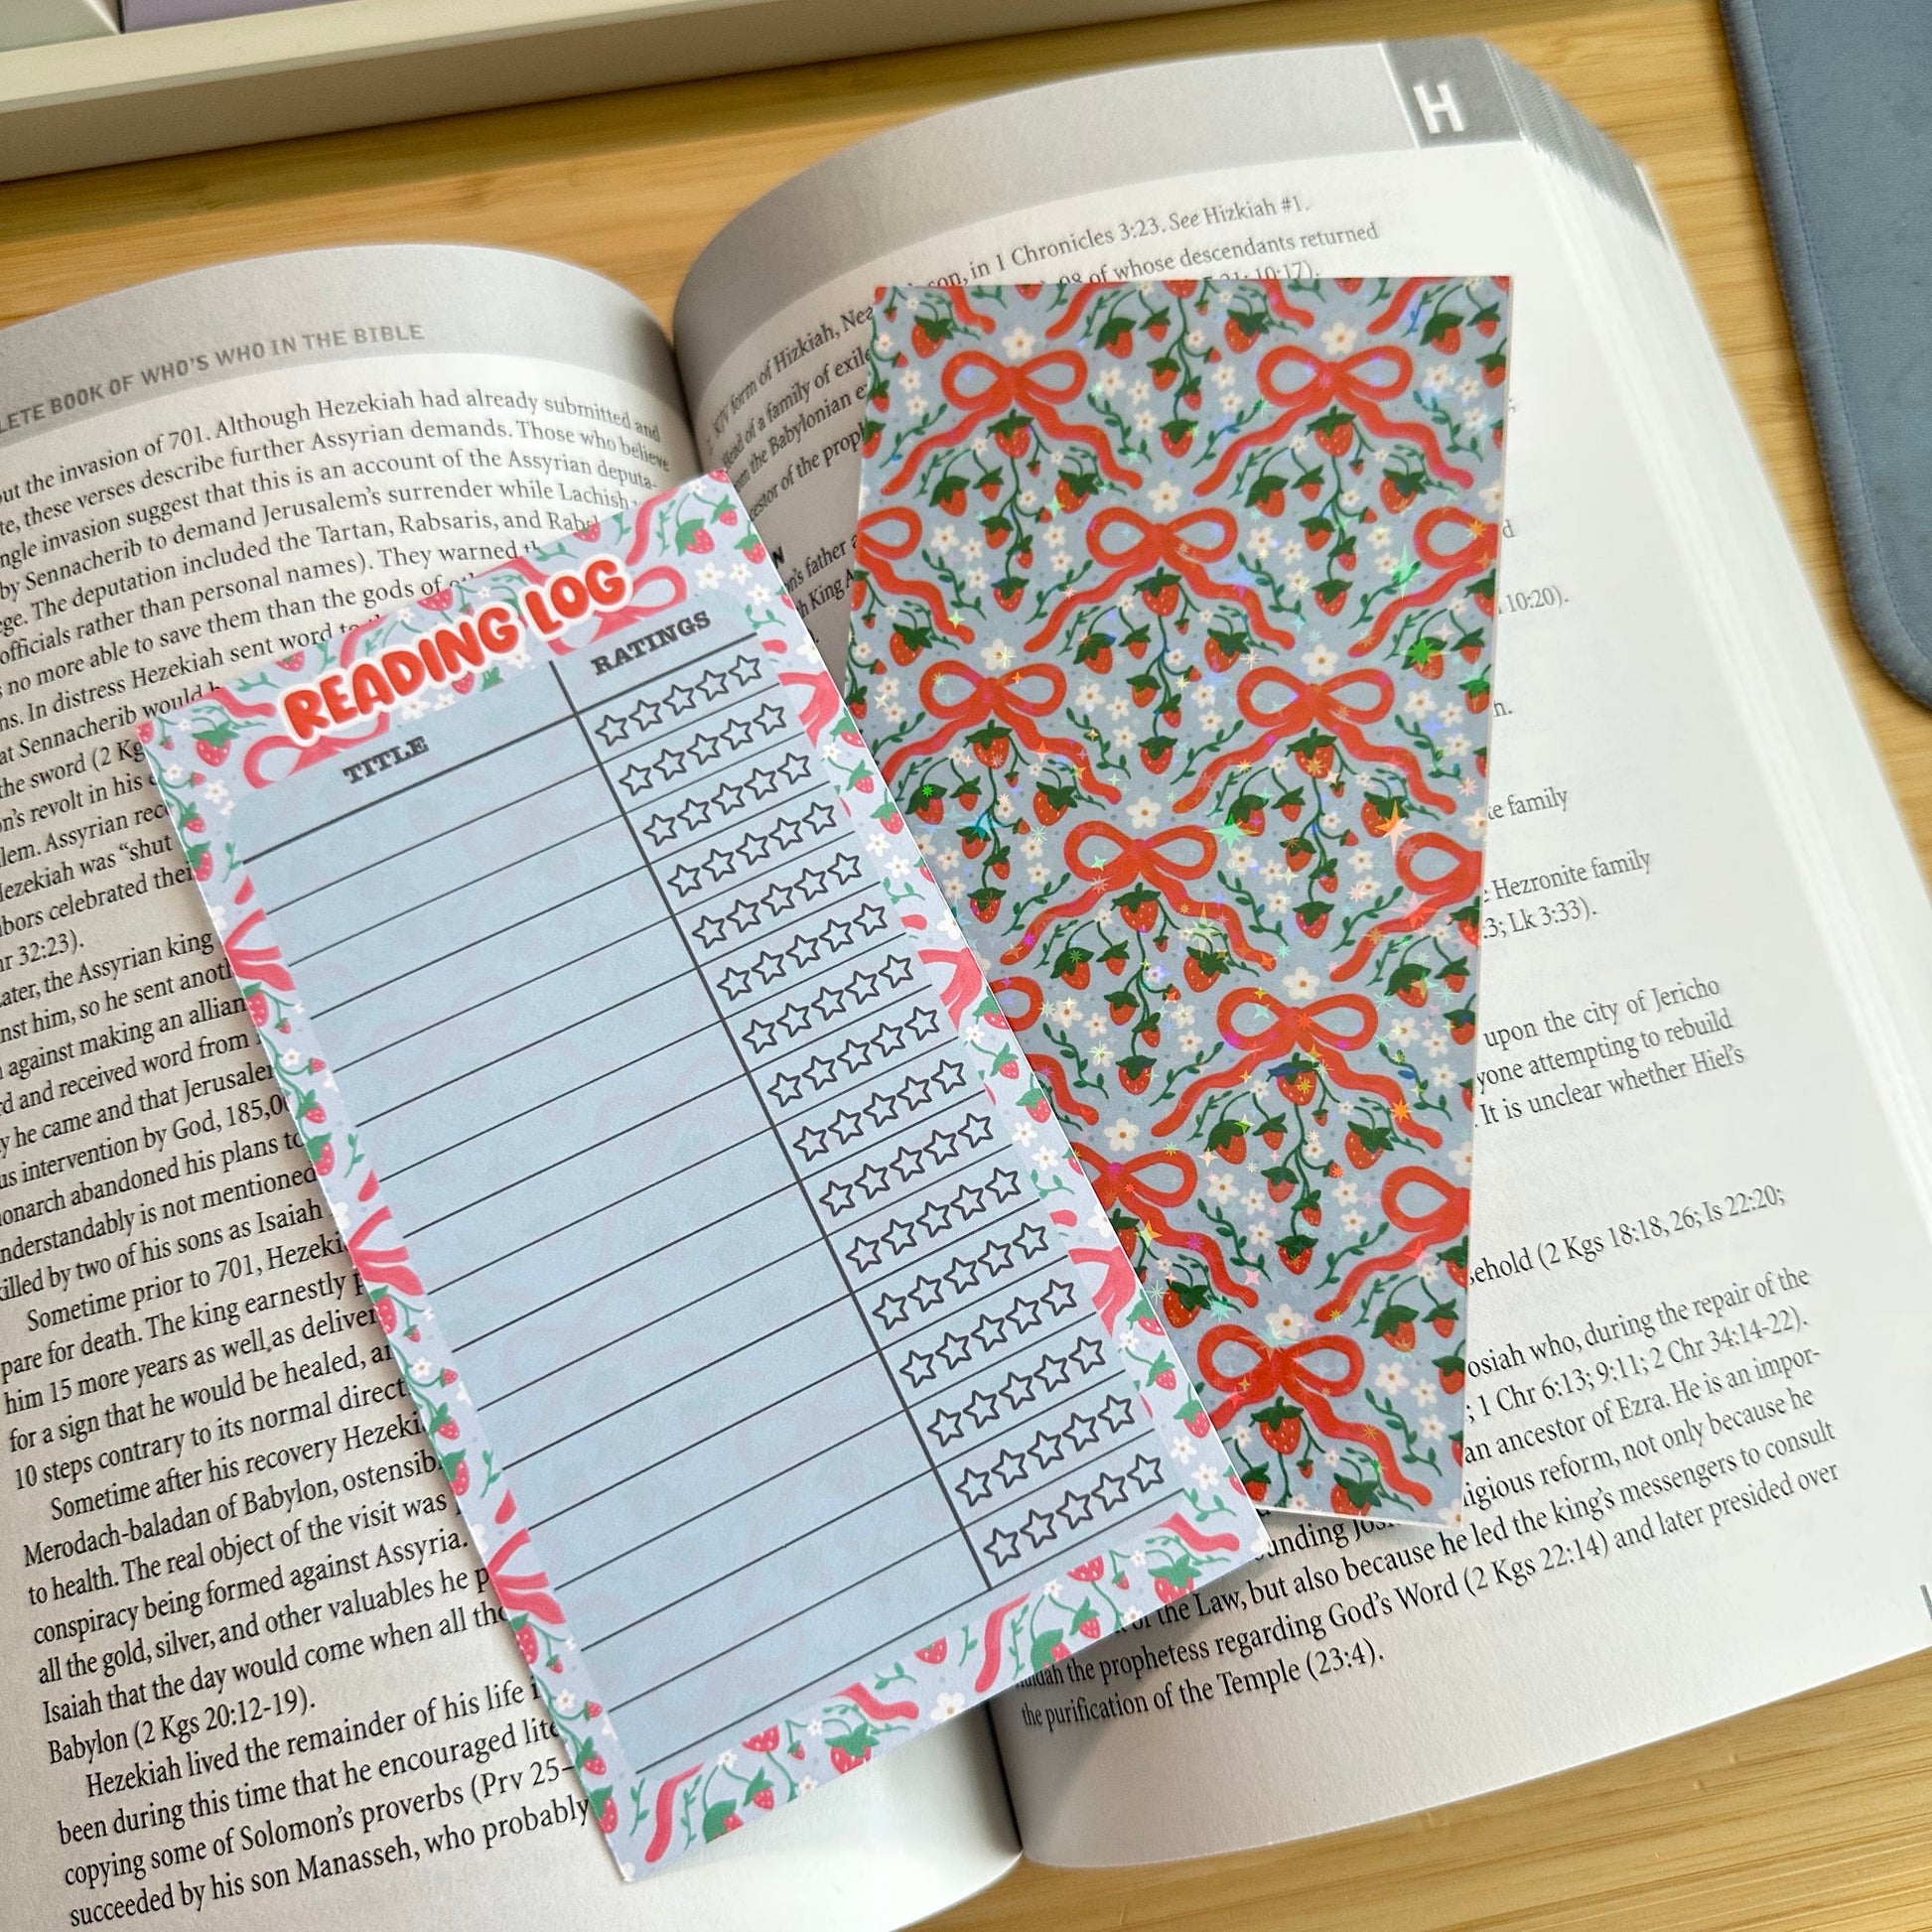 LETE BOOK OF WHO'S WHO IN THE BIBLE
out the invasion of 701. Although Hezekiah had already submitted and
te, these verses describe further Assyrian demands. Those who believe
ngle invasion suggest that this is an account of the Assyrian deputa-
by Sennacherib to demand Jerusalem's surrender while Lachish
ge. The deputation included the Tartan, Rabsaris, and
officials rather than personal names). They warned
no more able to save them than the gods of
ns. In distress Hezekiah sent word to
at Sennacherib would
the sword (2 Kg
on's revolt in his
lem. Assyrian rec
Hezekiah was "shut
bors celebrated thei
r 32:23).
ater, the Assyrian king
nst him, so he sent anoth
against making an allian
rd and received word from
y he came and that Jerusaler
us intervention by God, 185,0
onarch abandoned his plans to
nderstandably is not mentioned
illed by two of his sons as Isaiah
Sometime prior to 701, Hezeki
pare for death. The king earnestly p
him 15 more years as well as deliver
for a sign that he would be healed, an
10 steps contrary to its normal direct
Sometime after his recovery Hezeki
Merodach-baladan of Babylon, ostensib
to health. The real object of the visit was
conspiracy being formed against Assyria.
all the gold, silver, and other valuables he p
Isaiah that the day would come when all the
Babylon (2 Kgs 20:12-19).
Hezekiah lived the remainder of his life i
been during this time that he encouraged lite
copying some of Solomon's proverbs (Prv 25–
succeeded by his son Manasseh, who probably
READING LOG
TITLE
RATINGS
H
son, in 1 Chronicles 3:23. See Hizkiah #1.
KJV form of Hizkiah, Nea
of whose descendants returned
Head of a family of exile
10:17).
the Babylonian e
estor of the proph
N
n's father a
h King A
d
10:20).
h.
te family
Hezronite family
3; Lk 3:33).
upon the city of Jericho
yone attempting to rebuild
It is unclear whether Hiel's
sehold (2 Kgs 18:18, 26; Is 22:20;
osiah who, during the repair of the
; 1 Chr 6:13; 9:11; 2 Chr 34:14-22).
an ancestor of Ezra. He is an impor-
igious reform, not only because he
unding Jos
of the Law, but also because he led the king's messengers to consult
the prophetess regarding God's Word (2 Kgs 22:14) and later presided over
the purification of the Temple (23:4).